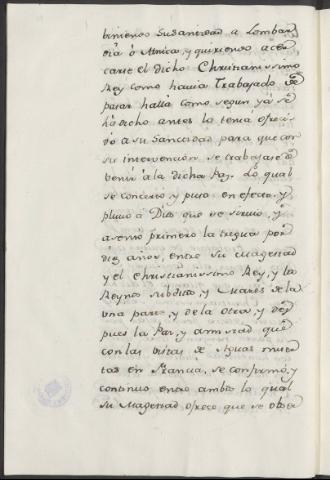 biniendo Su Santidad a Lombar
dia ò Monica, y quiriendo acer
carse el dicho Christianissimo
Rey como havia Trabajado de
pasar hallà como segun ya se
ha dicho antes lo tenia ofreci
do a su Sancidad para que con
su intervencion se trabajase de
venir à la dicha Paz. Lo qual
se concertò, y puso en efecto, y
pluvo à Dios que se sirviò, y
asentò primero la tregua por
diez años, entre su Magestad
y el Christianissimo Rey, y los
Reynos subditos, y Mares de la
una parte, y de la otra, y des
pues la Paz, y amistad que
con las vistas de Aguas muer
tas en Francia, se confirmò, y
continuò entre ambos lo qual
su Magestad ofreciò que se obser